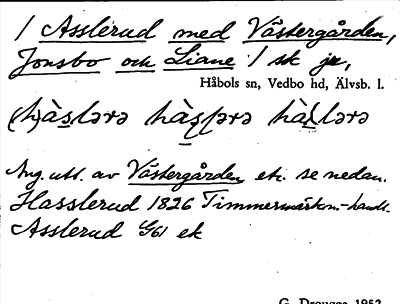 / Asslerud med Västergården,
Jonsbo och Liane / sk je,
Håbols sn, Vedbo hd, Älvsb. l.
(h)àslərə hàslərə hàlərə
Ang. utt. av Västergården etc. se nedan.
Hasslerud 1826 Timmermärkn.-handl.
Asslerud G61 ek
G. Drougge 1952